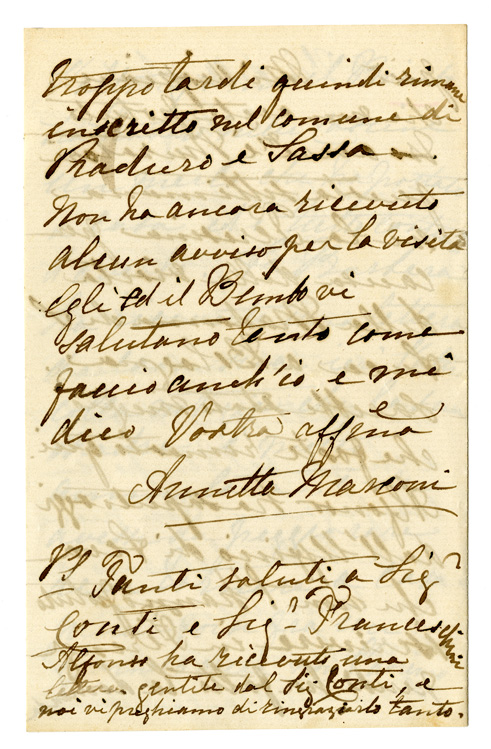 troppo tardi quindi rimane
inscritto nel comune di
Praduro e Sasso.
Non ha ancora ricevuto
alcun avviso per la visita
Egli ed il Bimbo vi
salutano tanto come
faccio anch'io e mi
dico Vostra affma
Annetta Marconi
PS Tanti saluti a Sigr
Conti e Sigr Franceschini
Alfonso ha ricevuto una
lettera gentile dal Sig Conti, e
noi vi preghiamo di ringraziarlo tanto.